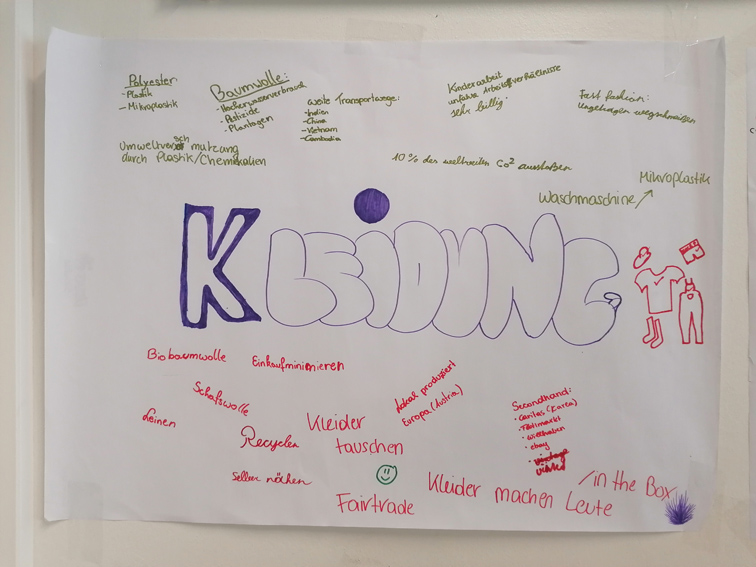 Polyester
- Plastik
- Mikroplastik
Baumwolle:
• Hocher wasserverbrauch
• Pestizide
• Plantagen
weite Transportwege:
- Indien
- China
- Vietnam
- Cambodia
Kinderarbeit
unfaire Arbeitsverhältnisse
sehr billig.
Fast fashion:
ungetragen wegschmeißen
Umweltverschmutzung
durch Plastik/Chemikalien
10% des weltweiten Co² ausstoßen
Mikroplastik
Waschmaschine
KLEIDUNG
Biobaumwolle
Einkauf minimieren
Schafswolle
Leinen
Recyclen
Kleider
tauschen
Lokal produziert
Europa (Austria)
Secondhand:
• Caritas (Korea)
• Flohmarkt
• willhaben
• ebay
Selber nähen
Fairtrade
Kleider machen Leute
/in the Box